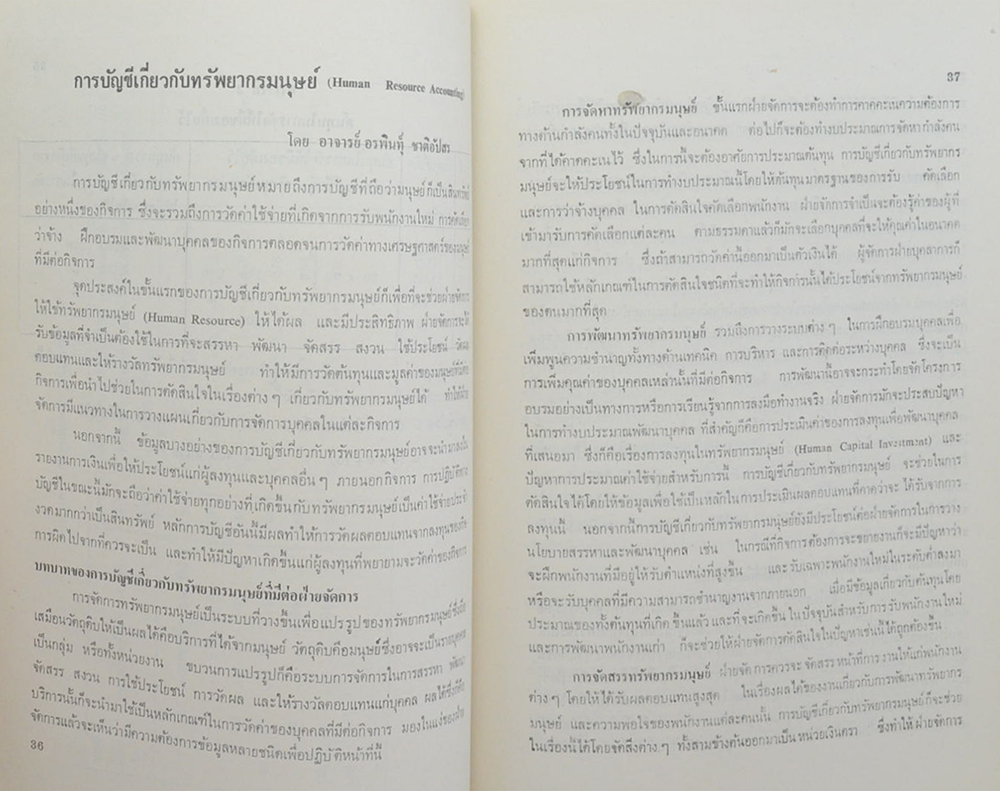 การบัญชีเกี่ยวกับทรัพยากรมนุษย์ (Human Resource Accounting)
โดย อาจารย์ อรพินทุ์ ชาติอัปสร
การบัญชีเกี่ยวกับทรัพยากรมนุษย์หมายถึงการบัญชีที่ถือว่ามนุษย์ก็เป็นสินทรัพย์
อย่างหนึ่งของกิจการ ซึ่งจะรวมถึงการวัดค่าใช้จ่ายที่เกิดจากการรับพนักงานใหม่ การคัดเลือก
ว่าจ้าง ฝึกอบรมและพัฒนาบุคคลของกิจการตลอดจนการวัดค่าทางเศรษฐศาสตร์ของมนุษย์
ที่มีต่อกิจการ
จุดประสงค์ในขั้นแรกของการบัญชีเกี่ยวกับทรัพยากรมนุษย์ก็เพื่อที่จะช่วยฝ่ายจัดการ
ให้ใช้ทรัพยากรมนุษย์ (Human Resource) ให้ได้ผล และมีประสิทธิภาพ ฝ่ายจัดการจะได้
รับข้อมูลที่จำเป็นต้องใช้ในการที่จะสรรหา พัฒนา จัดสรร สงวน ใช้ประโยชน์ วัดผล
ตอบแทนและให้รางวัลทรัพยากรมนุษย์ ทำให้มีการวัดต้นทุนและมูลค่าของมนุษย์ที่มีต่อ
กิจการเพื่อนำไปช่วยในการตัดสินใจในเรื่องต่าง ๆ เกี่ยวกับทรัพยากรมนุษย์ได้ ทำให้ฝ่าย
จัดการมีแนวทางในการวางแผนเกี่ยวกับการจัดการบุคคลในแต่ละกิจการ
นอกจากนี้ ข้อมูลบางอย่างของการบัญชีเกี่ยวกับทรัพยากรมนุษย์อาจจะนำมาลงใน
รายงานการเงินเพื่อให้ประโยชน์แก่ผู้ลงทุนและบุคคลอื่น ๆ ภายนอกกิจการ การปฏิบัติทาง
บัญชีในขณะนี้มักจะถือว่าค่าใช้จ่ายทุกอย่างที่เกิดขึ้นกับทรัพยากรมนุษย์เป็นค่าใช้จ่ายประจำ
งวดมากกว่าเป็นสินทรัพย์ หลักการบัญชีอันนี้มีผลทำให้การวัดผลตอบแทนจากลงทุนของกิจ
การผิดไปจากที่ควรจะเป็น และทำให้มีปัญหาเกิดขึ้นแก่ผู้ลงทุนที่พยายามจะวัดค่าของกิจการ
บทบาทของการบัญชีเกี่ยวกับทรัพยากรมนุษย์ที่มีต่อฝ่ายจัดการ
การจัดการทรัพยากรมนุษย์เป็นระบบที่วางขึ้นเพื่อแปรรูปของทรัพยากรมนุษย์ซึ่งถือ
เสมือนวัตถุดิบให้เป็นผลได้คือบริการที่ได้จากมนุษย์ วัตถุดิบคือมนุษย์ซึ่งอาจจะเป็นรายบุคคล
เป็นกลุ่ม หรือทั้งหน่วยงาน ขบวนการแปรรูปก็คือระบบการจัดการในการสรรหา พัฒนา
จัดสรร สงวน การใช้ประโยชน์ การวัดผล และให้รางวัลตอบแทนแก่บุคคล ผลได้ซึ่งก็คือ
บริการนั้นก็จะนำมาใช้เป็นหลักเกณฑ์ในการวัดค่าของบุคคลที่มีต่อกิจการ มองในแง่ของฝ่าย
จัดการแล้วจะเห็นว่ามีความต้องการข้อมูลหลายชนิดเพื่อปฏิบัติหน้าที่นี้
36
37
การจัดหาทรัพยากรมนุษย์ ขั้นแรกฝ่ายจัดการจะต้องทำการคาดคะเนความต้องการ
ทางด้านกำลังคนทั้งในปัจจุบันและอนาคต ต่อไปก็จะต้องทำงบประมาณการจัดหากำลังคน
จากที่ได้คาดคะเนไว้ ซึ่งในการนี้จะต้องอาศัยการประมาณต้นทุน การบัญชีเกี่ยวกับทรัพยากร
มนุษย์จะให้ประโยชน์ในการทำงบประมาณนี้โดยให้ต้นทุนมาตรฐานของการรับ คัดเลือก
และการว่าจ้างบุคคล ในการตัดสินใจคัดเลือกพนักงาน ฝ่ายจัดการจำเป็นจะต้องรู้ค่าของผู้ที่
เข้ามารับการคัดเลือกแต่ละคน ตามธรรมดาแล้วก็มักจะเลือกบุคคลที่จะให้คุณค่าในอนาคต
มากที่สุดแก่กิจการ ซึ่งถ้าสามารถวัดค่านี้ออกมาเป็นตัวเงินได้ ผู้จัดการฝ่ายบุคลากรก็
สามารถใช้หลักเกณฑ์ในการตัดสินใจชนิดที่จะทำให้กิจการนั้นได้ประโยชน์จากทรัพยากรมนุษย์
ของตนมากที่สุด
การพัฒนาทรัพยากรมนุษย์ รวมถึงการวางระบบต่าง ๆ ในการฝึกอบรมบุคคลเพื่อ
เพิ่มพูนความชำนาญทั้งทางด้านเทคนิค การบริหาร และการติดต่อระหว่างบุคคล ซึ่งจะเป็น
การเพิ่มคุณค่าของบุคคลเหล่านั้นที่มีต่อกิจการ การพัฒนานี้อาจจะกระทำโดยจัดโครงการ
อบรมอย่างเป็นทางการหรือการเรียนรู้จากการลงมือทำงานจริง ฝ่ายจัดการมักจะประสบปัญหา
ในการทำงบประมาณพัฒนาบุคคล ที่สำคัญก็คือการประเมินค่าของการลงทุนเพื่อพัฒนาบุคคล
ที่เสนอมา ซึ่งก็คือเรื่องการลงทุนในทรัพยากรมนุษย์ (Human Capital Investment) และ
ปัญหาการประมาณค่าใช้จ่ายสำหรับการนี้ การบัญชีเกี่ยวกับทรัพยากรมนุษย์ จะช่วยในการ
ตัดสินใจได้โดยให้ข้อมูลเพื่อใช้เป็นหลักในการประเมินผลตอบแทนที่คาดว่าจะได้รับจากการ
ลงทุนนี้ นอกจากนี้การบัญชีเกี่ยวกับทรัพยากรมนุษย์ยังมีประโยชน์ต่อฝ่ายจัดการในการวาง
นโยบายสรรหาและพัฒนาบุคคล เช่น ในกรณีที่กิจการต้องการจะขยายงานก็จะมีปัญหาว่า
จะฝึกพนักงานที่มีอยู่ให้รับตำแหน่งที่สูงขึ้น และรับเฉพาะพนักงานใหม่ในระดับต่ำลงมา
หรือจะรับบุคคลที่มีความสามารถชำนาญงานจากภายนอก เมื่อมีข้อมูลเกี่ยวกับต้นทุนโดย
ประมาณของทั้งต้นทุนที่เกิดขึ้นแล้ว และที่จะเกิดขึ้น ในปัจจุบันสำหรับการรับพนักงานใหม่
และการพัฒนาพนักงานเก่า ก็จะช่วยให้ฝ่ายจัดการตัดสินใจในปัญหาเช่นนี้ได้ถูกต้องขึ้น
การจัดสรรทรัพยากรมนุษย์ ฝ่ายจัดการควรจะจัดสรรหน้าที่การงานให้แก่พนักงาน
ต่าง ๆ โดยให้ได้รับผลตอบแทนสูงสุด ในเรื่องผลได้ของงานเกี่ยวกับการพัฒนาทรัพยากร
มนุษย์ และความพอใจของพนักงานแต่ละคนนั้น การบัญชีเกี่ยวกับทรัพยากรมนุษย์ก็จะช่วย
ในเรื่องนี้ได้โดยจัดสิ่งต่าง ๆ ทั้งสามข้างต้นออกมาเป็นหน่วยเงินตรา ซึ่งทำให้ฝ่ายจัดการ